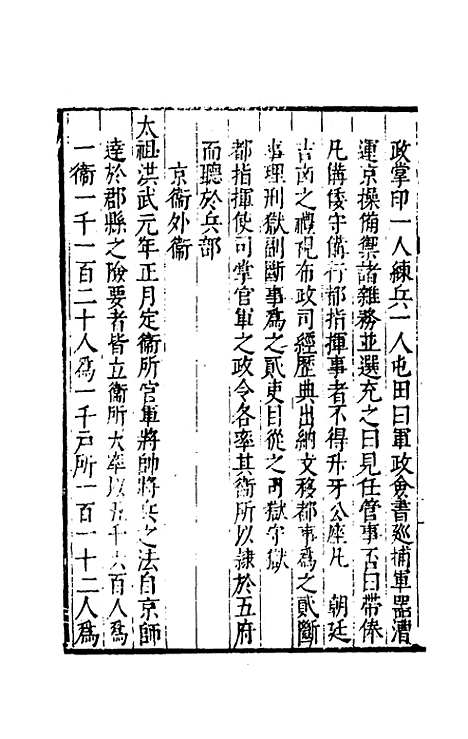 政掌印一人練兵一人屯田曰軍政僉書廵捕軍器漕
運京操備禦諸雜務並選充之曰見任管事否曰帶俸
凡備倭守備行都指揮事者不得升牙公座凡　朝廷
吉凶之禮視布政司經歷典出納文移都事爲之貳斷
事理刑獄副斷事爲之貳吏目從之司獄守獄
都指揮使司掌官軍之政令各率其衛所以隷於五府
而聽於兵部
京衛外衛
太祖洪武元年正月定衛所官軍將帥將兵之法自京師
達於郡縣之險要者皆立衛所大率以五千六百人爲
一衛一千一百二十人爲一千戸所一百一十二人爲